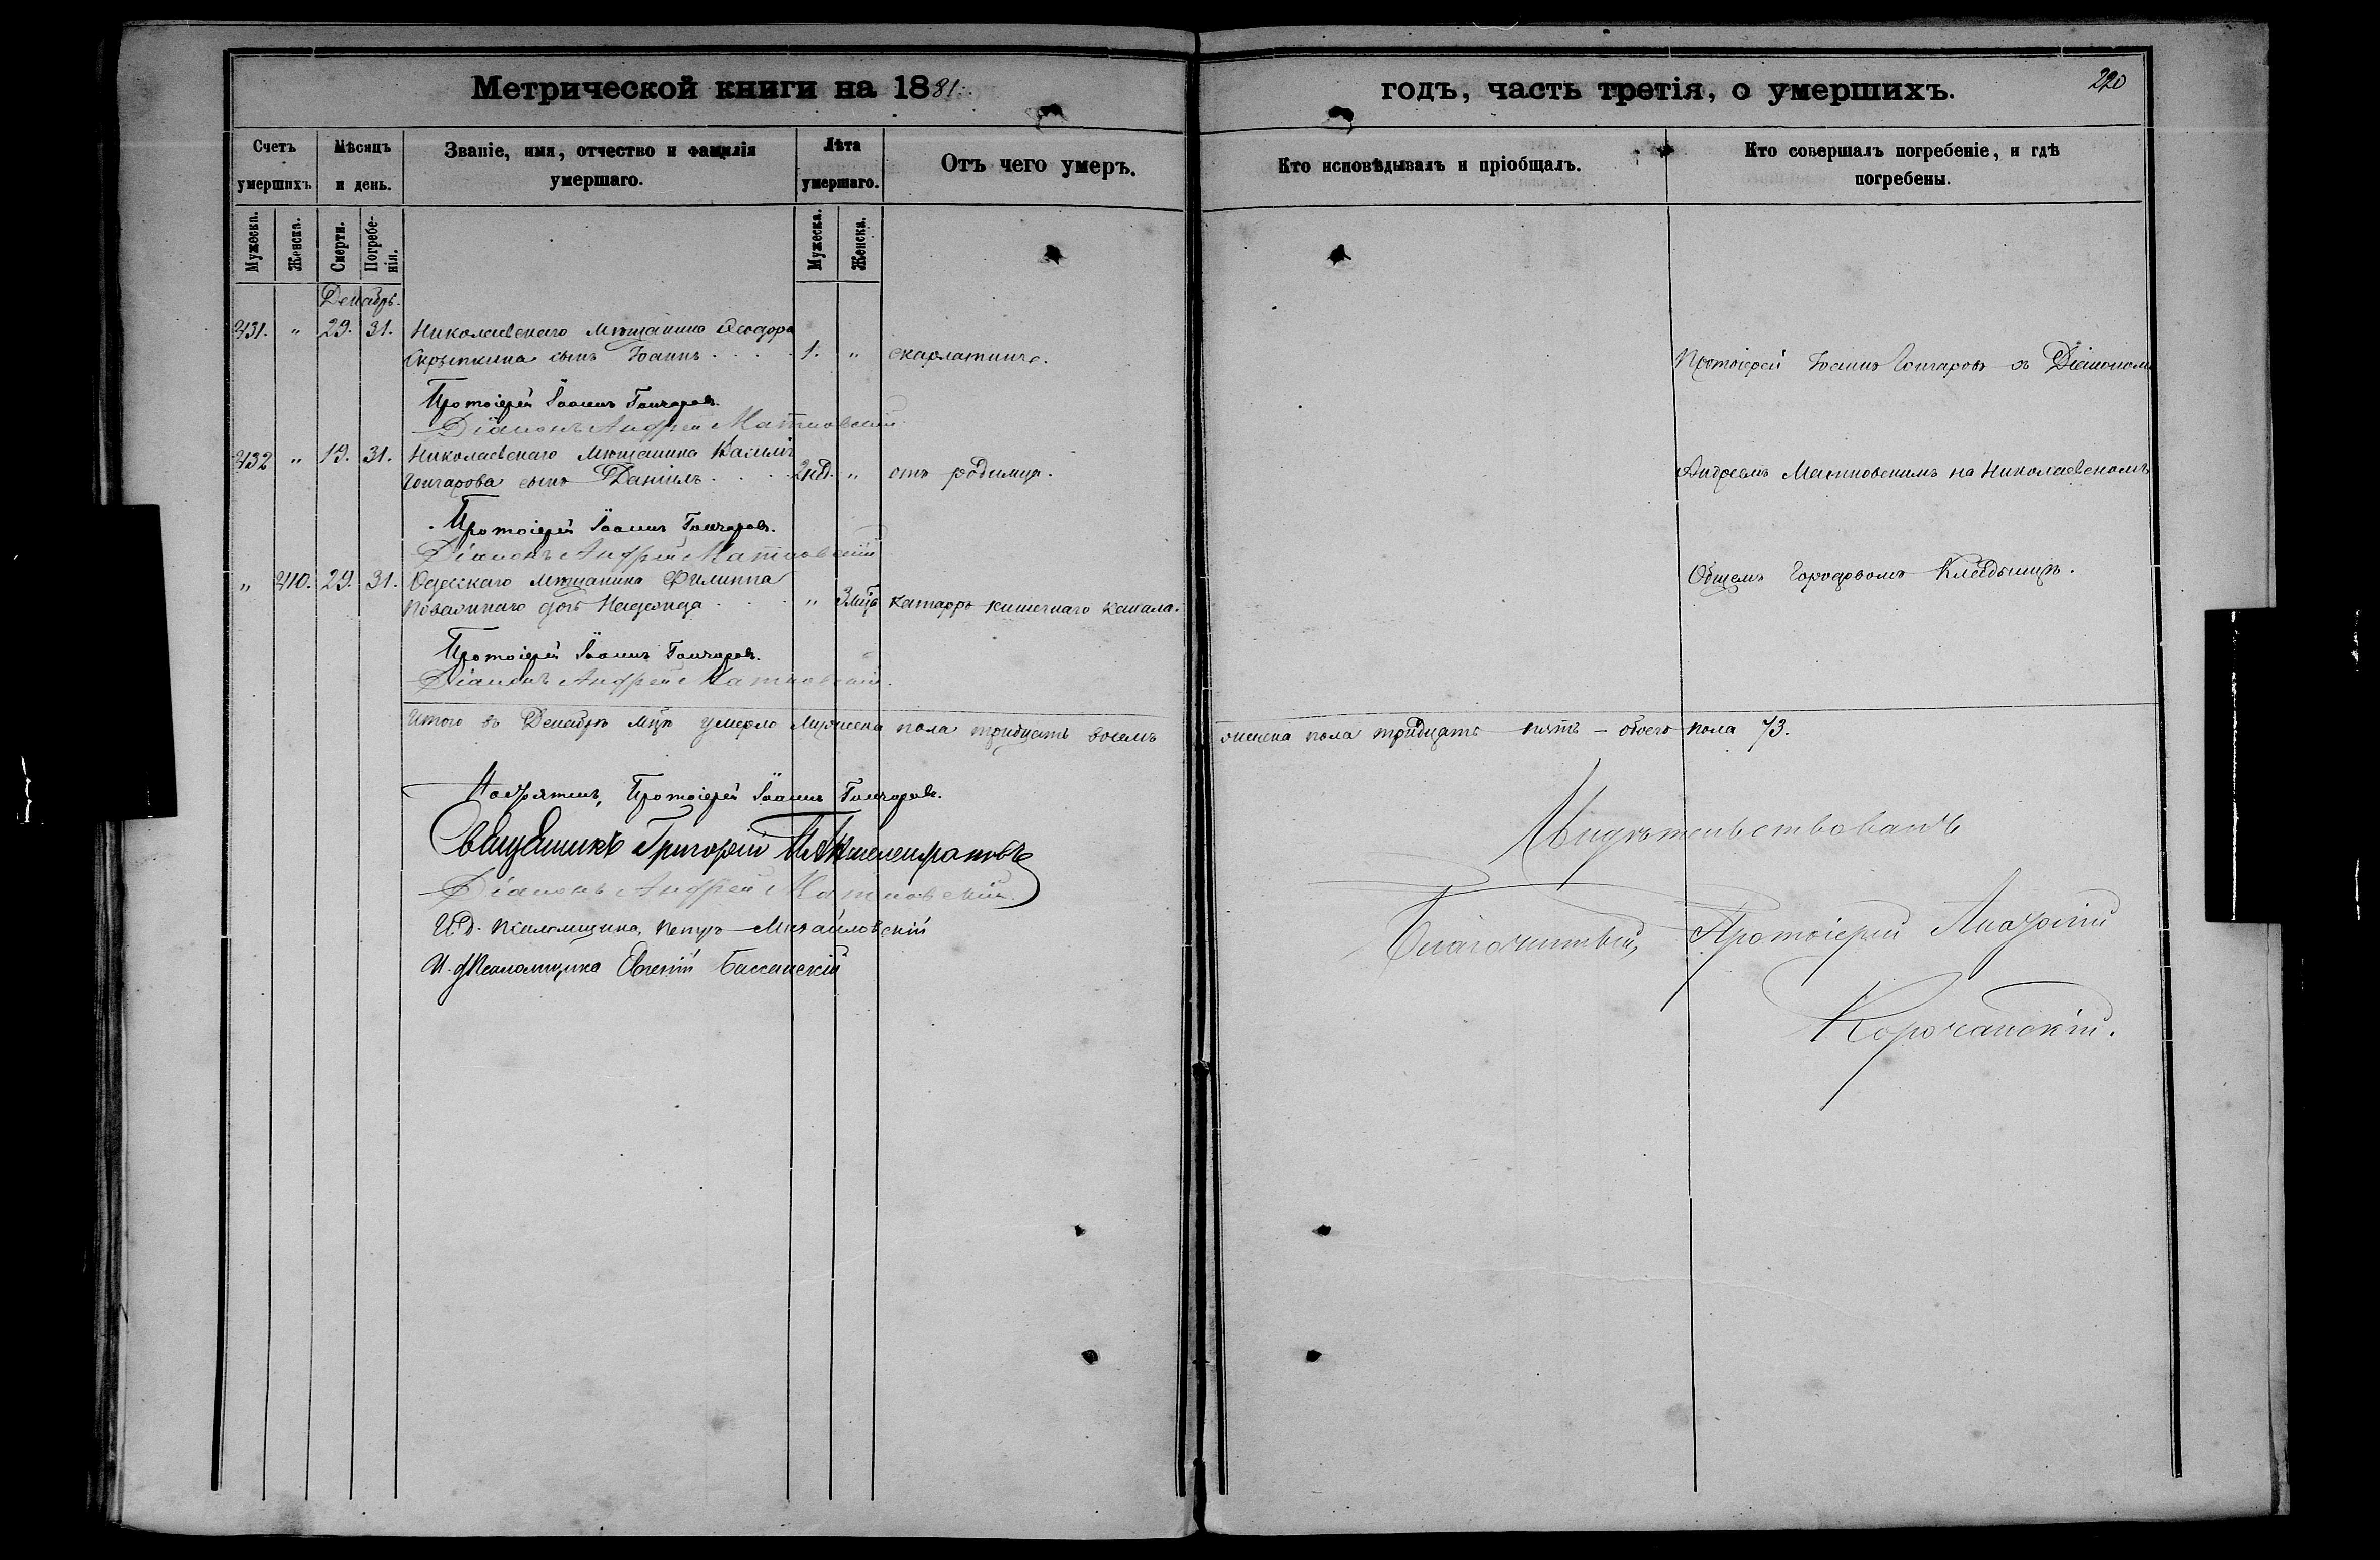 Метрической книги на 1881.
годъ, часть третія, о умершихъ.
220
Счетъ умершихъ.
Мѣсяцъ и день.
Званіе, имя, отчество и фамилія умершаго.
Лѣта умершаго.
Отъ чего умеръ.
Кто исповѣдывалъ и пріобщалъ.
Кто совершалъ погребеніе, и гдѣ погребены.
Мужеска. Женска. Смерти. Погребенія. Мужеска. Женска.
Декабрь.
431. " 29. 31. Николаевскаго Мѣщанина Ѳеодора
Скрыпкина сынъ Іоаннъ . . . . 1. " скарлатины.
Протоіерей Іоаннъ Гончаровъ съ Діакономъ
Протоіерей Іоаннъ Гончаровъ.
Діаконъ Андрей Матковскій
432 " 19. 31. Николаевскаго Мѣщанина Василія
Гончарова сынъ Даніилъ . . . . 2 нед. " отъ родимца.
Андреемъ Матковскимъ на Николаевскомъ
Протоіерей Іоаннъ Гончаровъ.
Діаконъ Андрей Матковскій
" 410. 29. 31. Одесскаго мѣщанина Филиппа
дочь Надежда . . . " 3 мѣс. катарръ кишечнаго канала.
Общемъ Городовомъ Кладбищѣ.
Протоіерей Іоаннъ Гончаровъ.
Діаконъ Андрей Матковскій.
Итого въ Декабрѣ мцѣ умерло Мужеска пола тридцать восемь женска пола тридцать пять – обоего пола 73.
Настоятель, Протоіерей Іоаннъ Гончаровъ.
Священникъ Григорій
Діаконъ Андрей Матковскій.
И. д. Псаломщика, Петръ Михайловскій
И. д. Псаломщика Евгеній
Свидѣтельствовалъ
Благочинный, Протоіерей
Корочанскій.